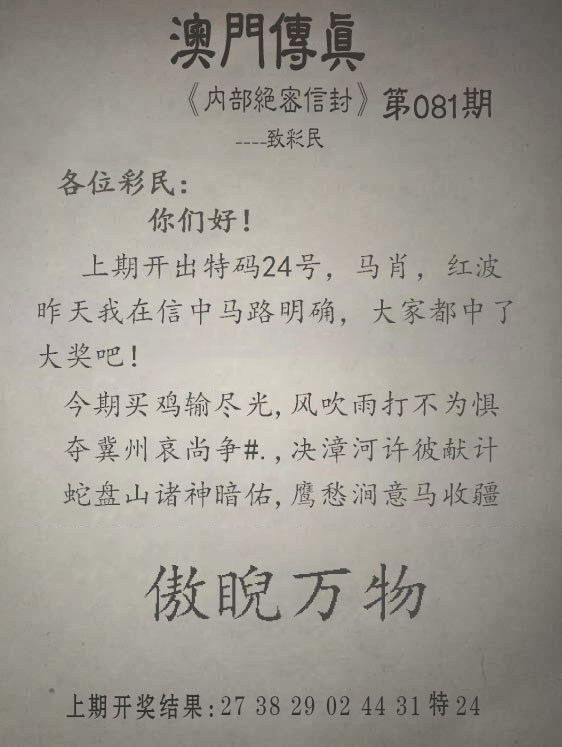 澳門傳眞
《内部絕密信封》第081期
----致彩民
各位彩民：
你们好！
上期开出特码24号，马肖，红波
昨天我在信中马路明确，大家都中了
大奖吧！
今期买鸡输尽光,风吹雨打不为惧
夺冀州哀尚争#.,决漳河许彼献计
蛇盘山诸神暗佑,鹰愁涧意马收疆
傲睨万物
上期开奖结果:27 38 29 02 44 31 特 24